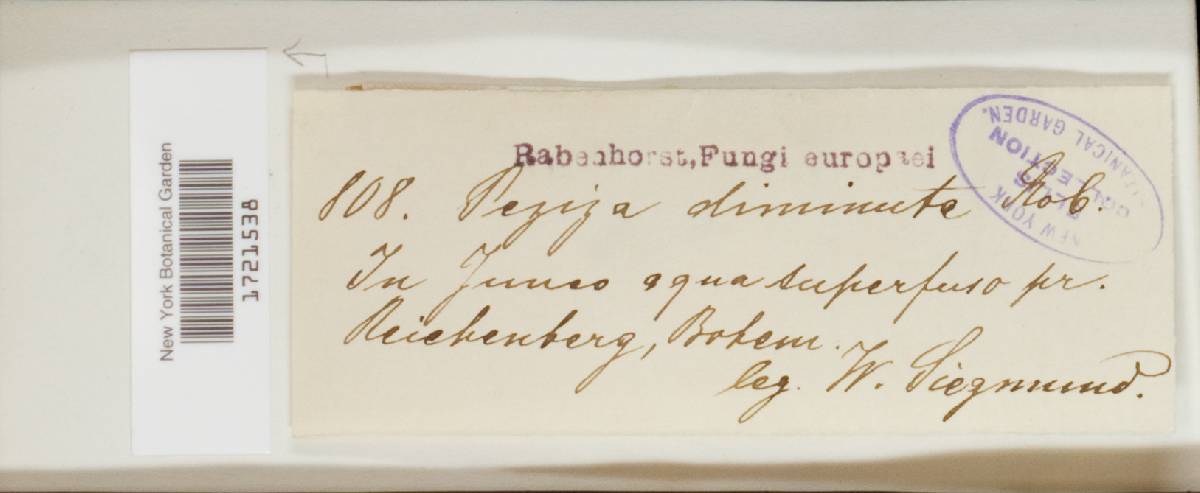 New York Botanical Garden
1721538
Rabenhorst, Fungi europaei
808. Peziza diminuta Rob.
In Junco aqua superfuso pr.
Reichenberg, Bohem.
leg. W. Siegmund.
NEW YORK
ELLIS
COLLECTION
BOTANICAL GARDEN.